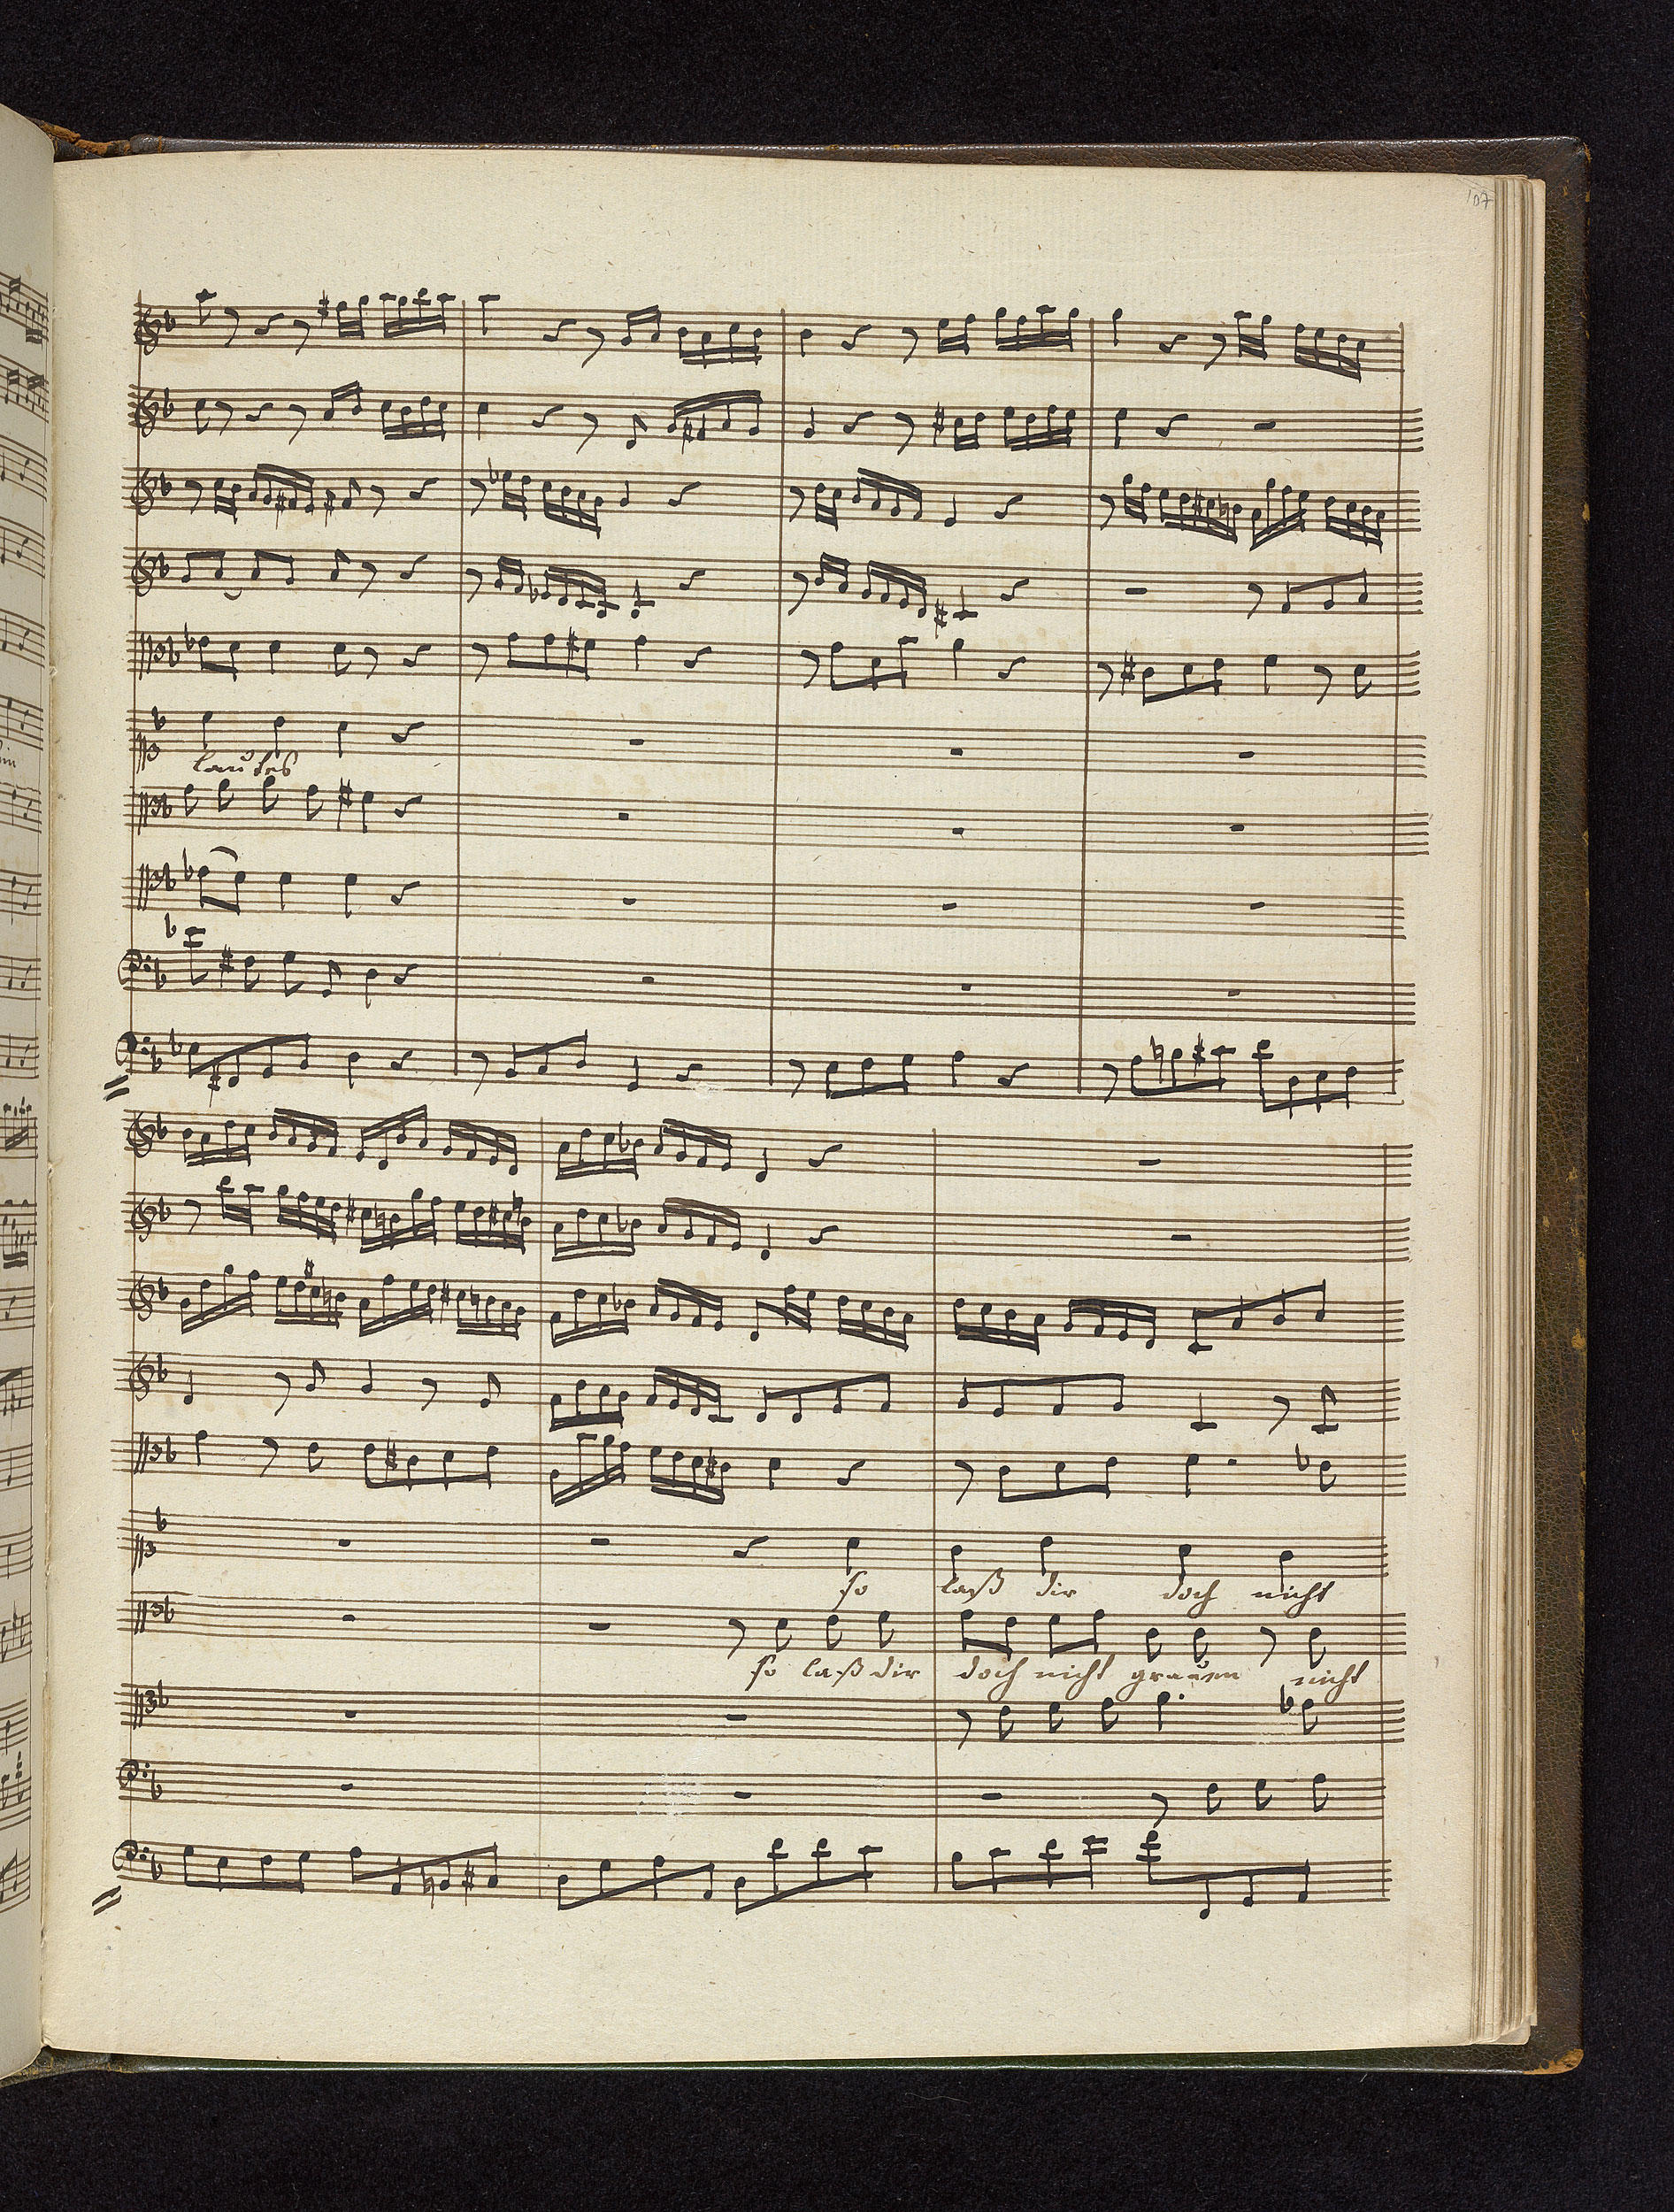 107
lautes
so laß dir doch nicht
so laß dir doch nicht grauen nicht